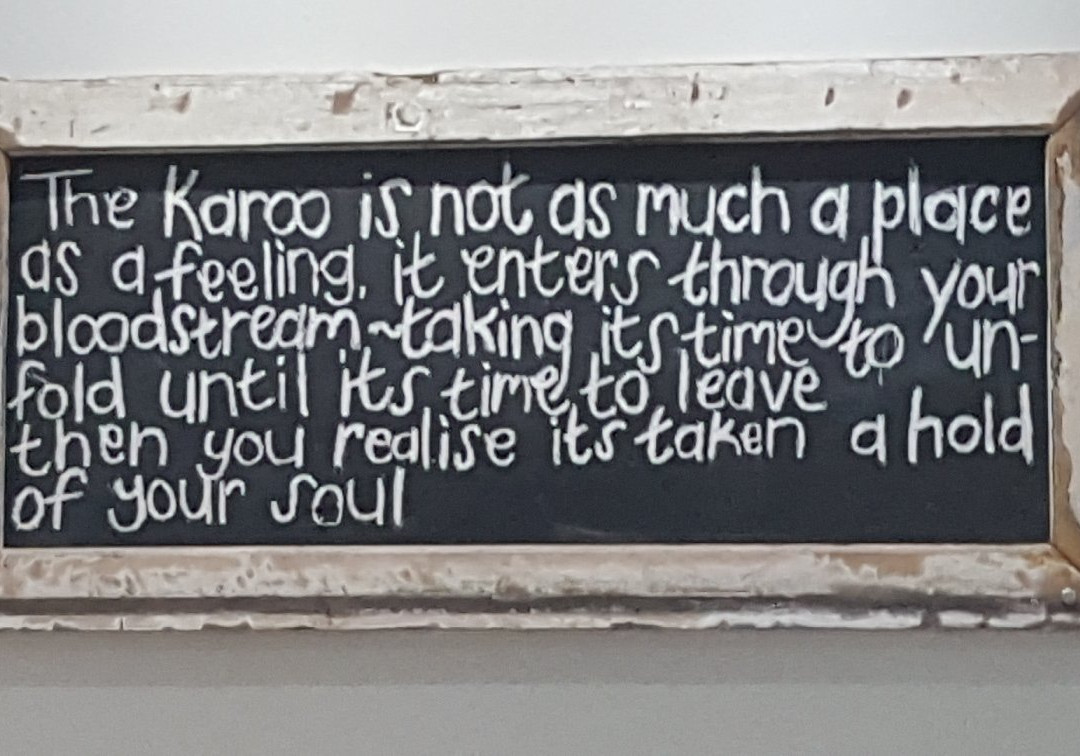 The Karoo is not as much a place
as a feeling, it enters through your
bloodstream ~ taking its time to un-
fold until its time to leave
then you realise its taken a hold
of your soul